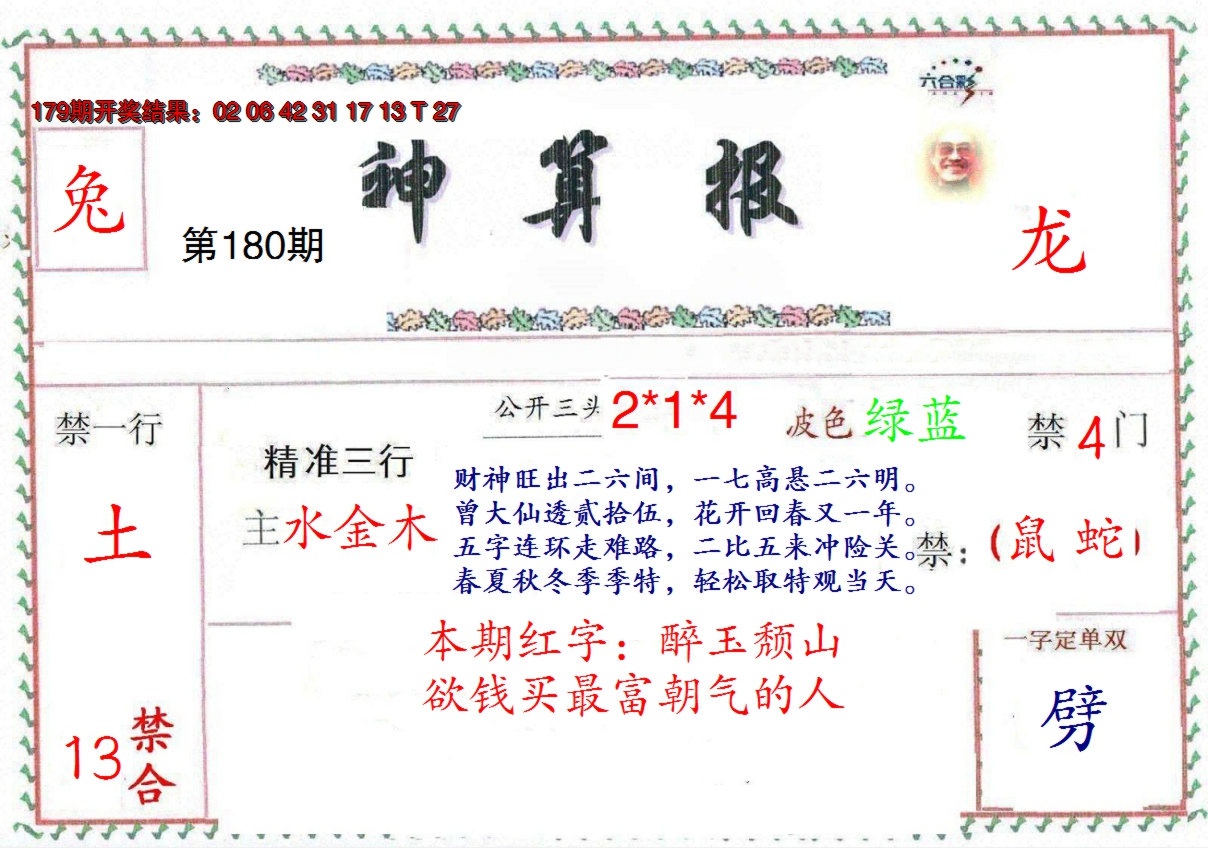 六合彩
179期开奖结果：02 06 42 31 17 13 T 27
兔
神算报
第180期
龙
禁一行
土
13
禁合
精准三行
主水金木
公开三头 2*1*4
波色 绿蓝
禁 4 门
财神旺出二六间，一七高悬二六明。
曾大仙透贰拾伍，花开回春又一年。
五字连环走难路，二比五来冲险关。
春夏秋冬季季特，轻松取特观当天。
禁：（鼠 蛇）
本期红字：醉玉颓山
欲钱买最富朝气的人
一字定单双
劈